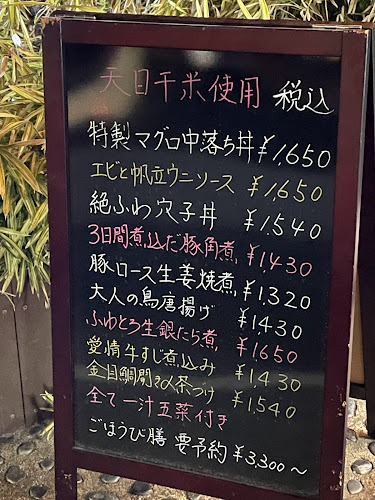 天日干米使用 税込
特製マグロ中落ち丼 ¥1,650
エビと帆立ウニソース ¥1,650
絶ふわ穴子丼 ¥1,540
3日間煮込だ豚角煮 ¥1,430
豚ロース生姜焼煮 ¥1,320
大人の鳥唐揚げ ¥1430
ふわとろ生銀たら煮 ¥1650
愛情牛すじ煮込み ¥1430
金目鯛開きの茶づけ ¥1,540
全て一汁五菜付き
ごほうび膳 要予約 ¥3,300〜